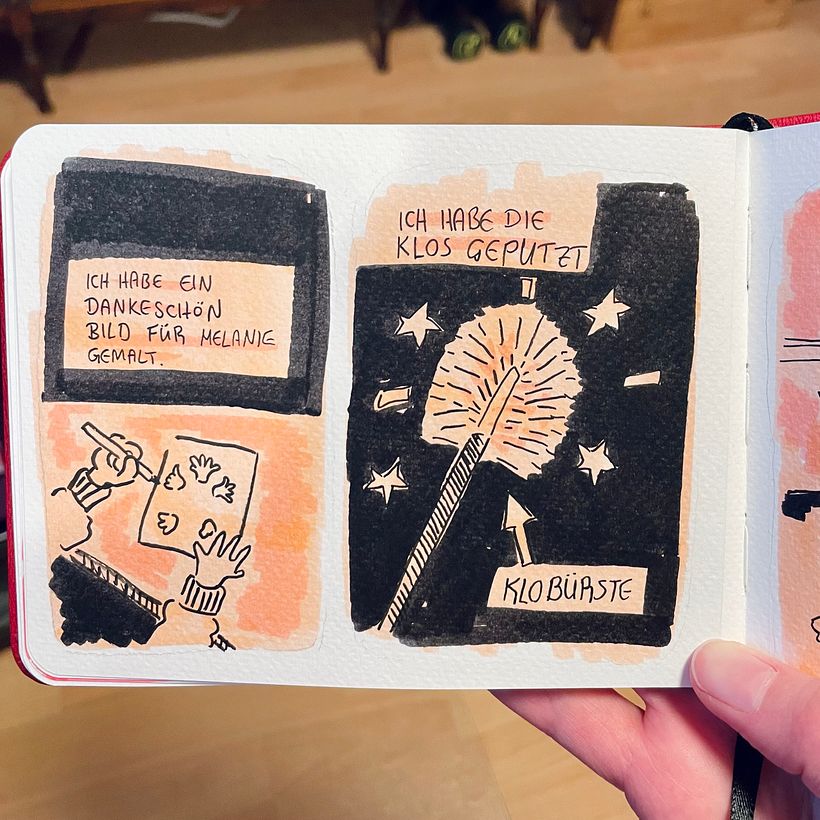 ICH HABE EIN
DANKESCHÖN
BILD FÜR MELANIE
GEMALT.
ICH HABE DIE
KLOS GEPUTZT
KLOBÜRSTE